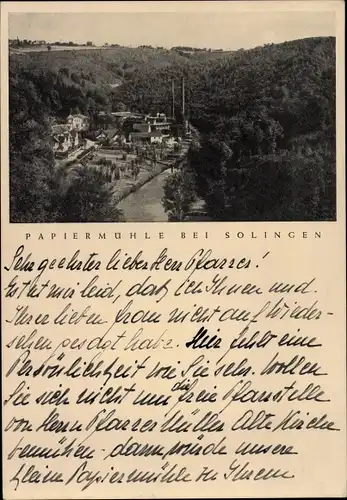 PAPIERMÜHLE BEI SOLINGEN
Sehr geehrter lieber Herr Pfarrer!
Es tut mir leid, daß ich Ihnen und
Ihrer lieben Frau nicht auf Wieder-
sehen gesagt habe. Hier fehlt eine
Persönlichkeit wie Sie sehr. Wollen
Sie sich nicht um die freie Pfarrstelle
von Herrn Pfarrer Müller Alte Kirche
bemühen - dann würde unsere
kleine Papiermühle zu Ihrem